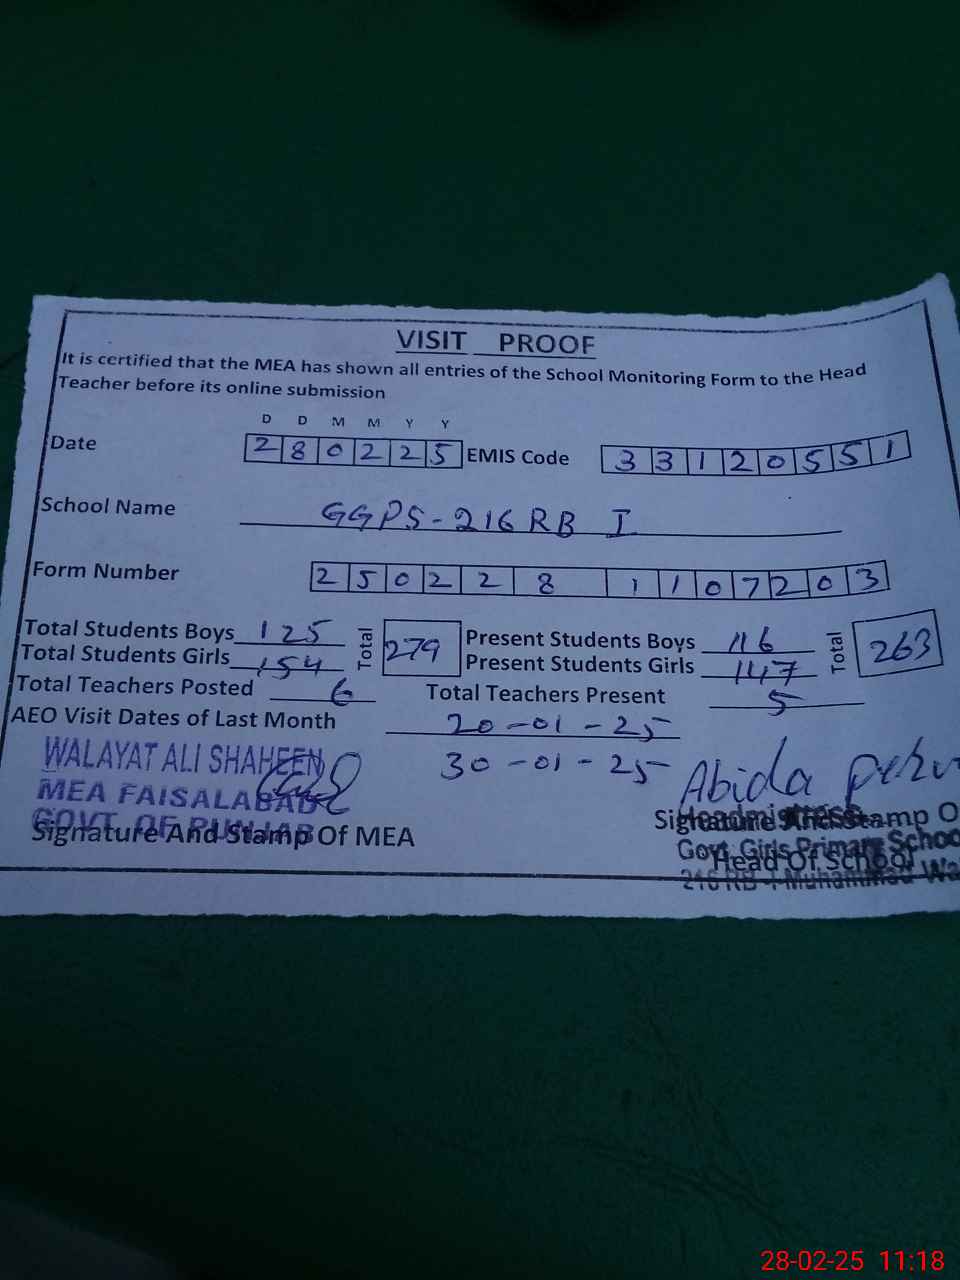 VISIT PROOF
It is certified that the MEA has shown all entries of the School Monitoring Form to the Head
Teacher before its online submission
D D M M Y Y
Date 280225 EMIS Code 33120551
School Name GGPS-216 RB I
Form Number 250228 1107203
Total Students Boys 125 Total 279 Present Students Boys 116 Total 263
Total Students Girls 154 Present Students Girls 147
Total Teachers Posted 6 Total Teachers Present 5
AEO Visit Dates of Last Month 20-01-25
30-01-25
WALAYAT ALI SHAHEEN
MEA FAISALABAD
GOVT. OF PUNJAB
Signature And Stamp Of MEA
Abida
Headmistress
Signature And Stamp O
Govt. Girls Primary School
Head Of School
216 RB Muhammad Wa
28-02-25 11:18